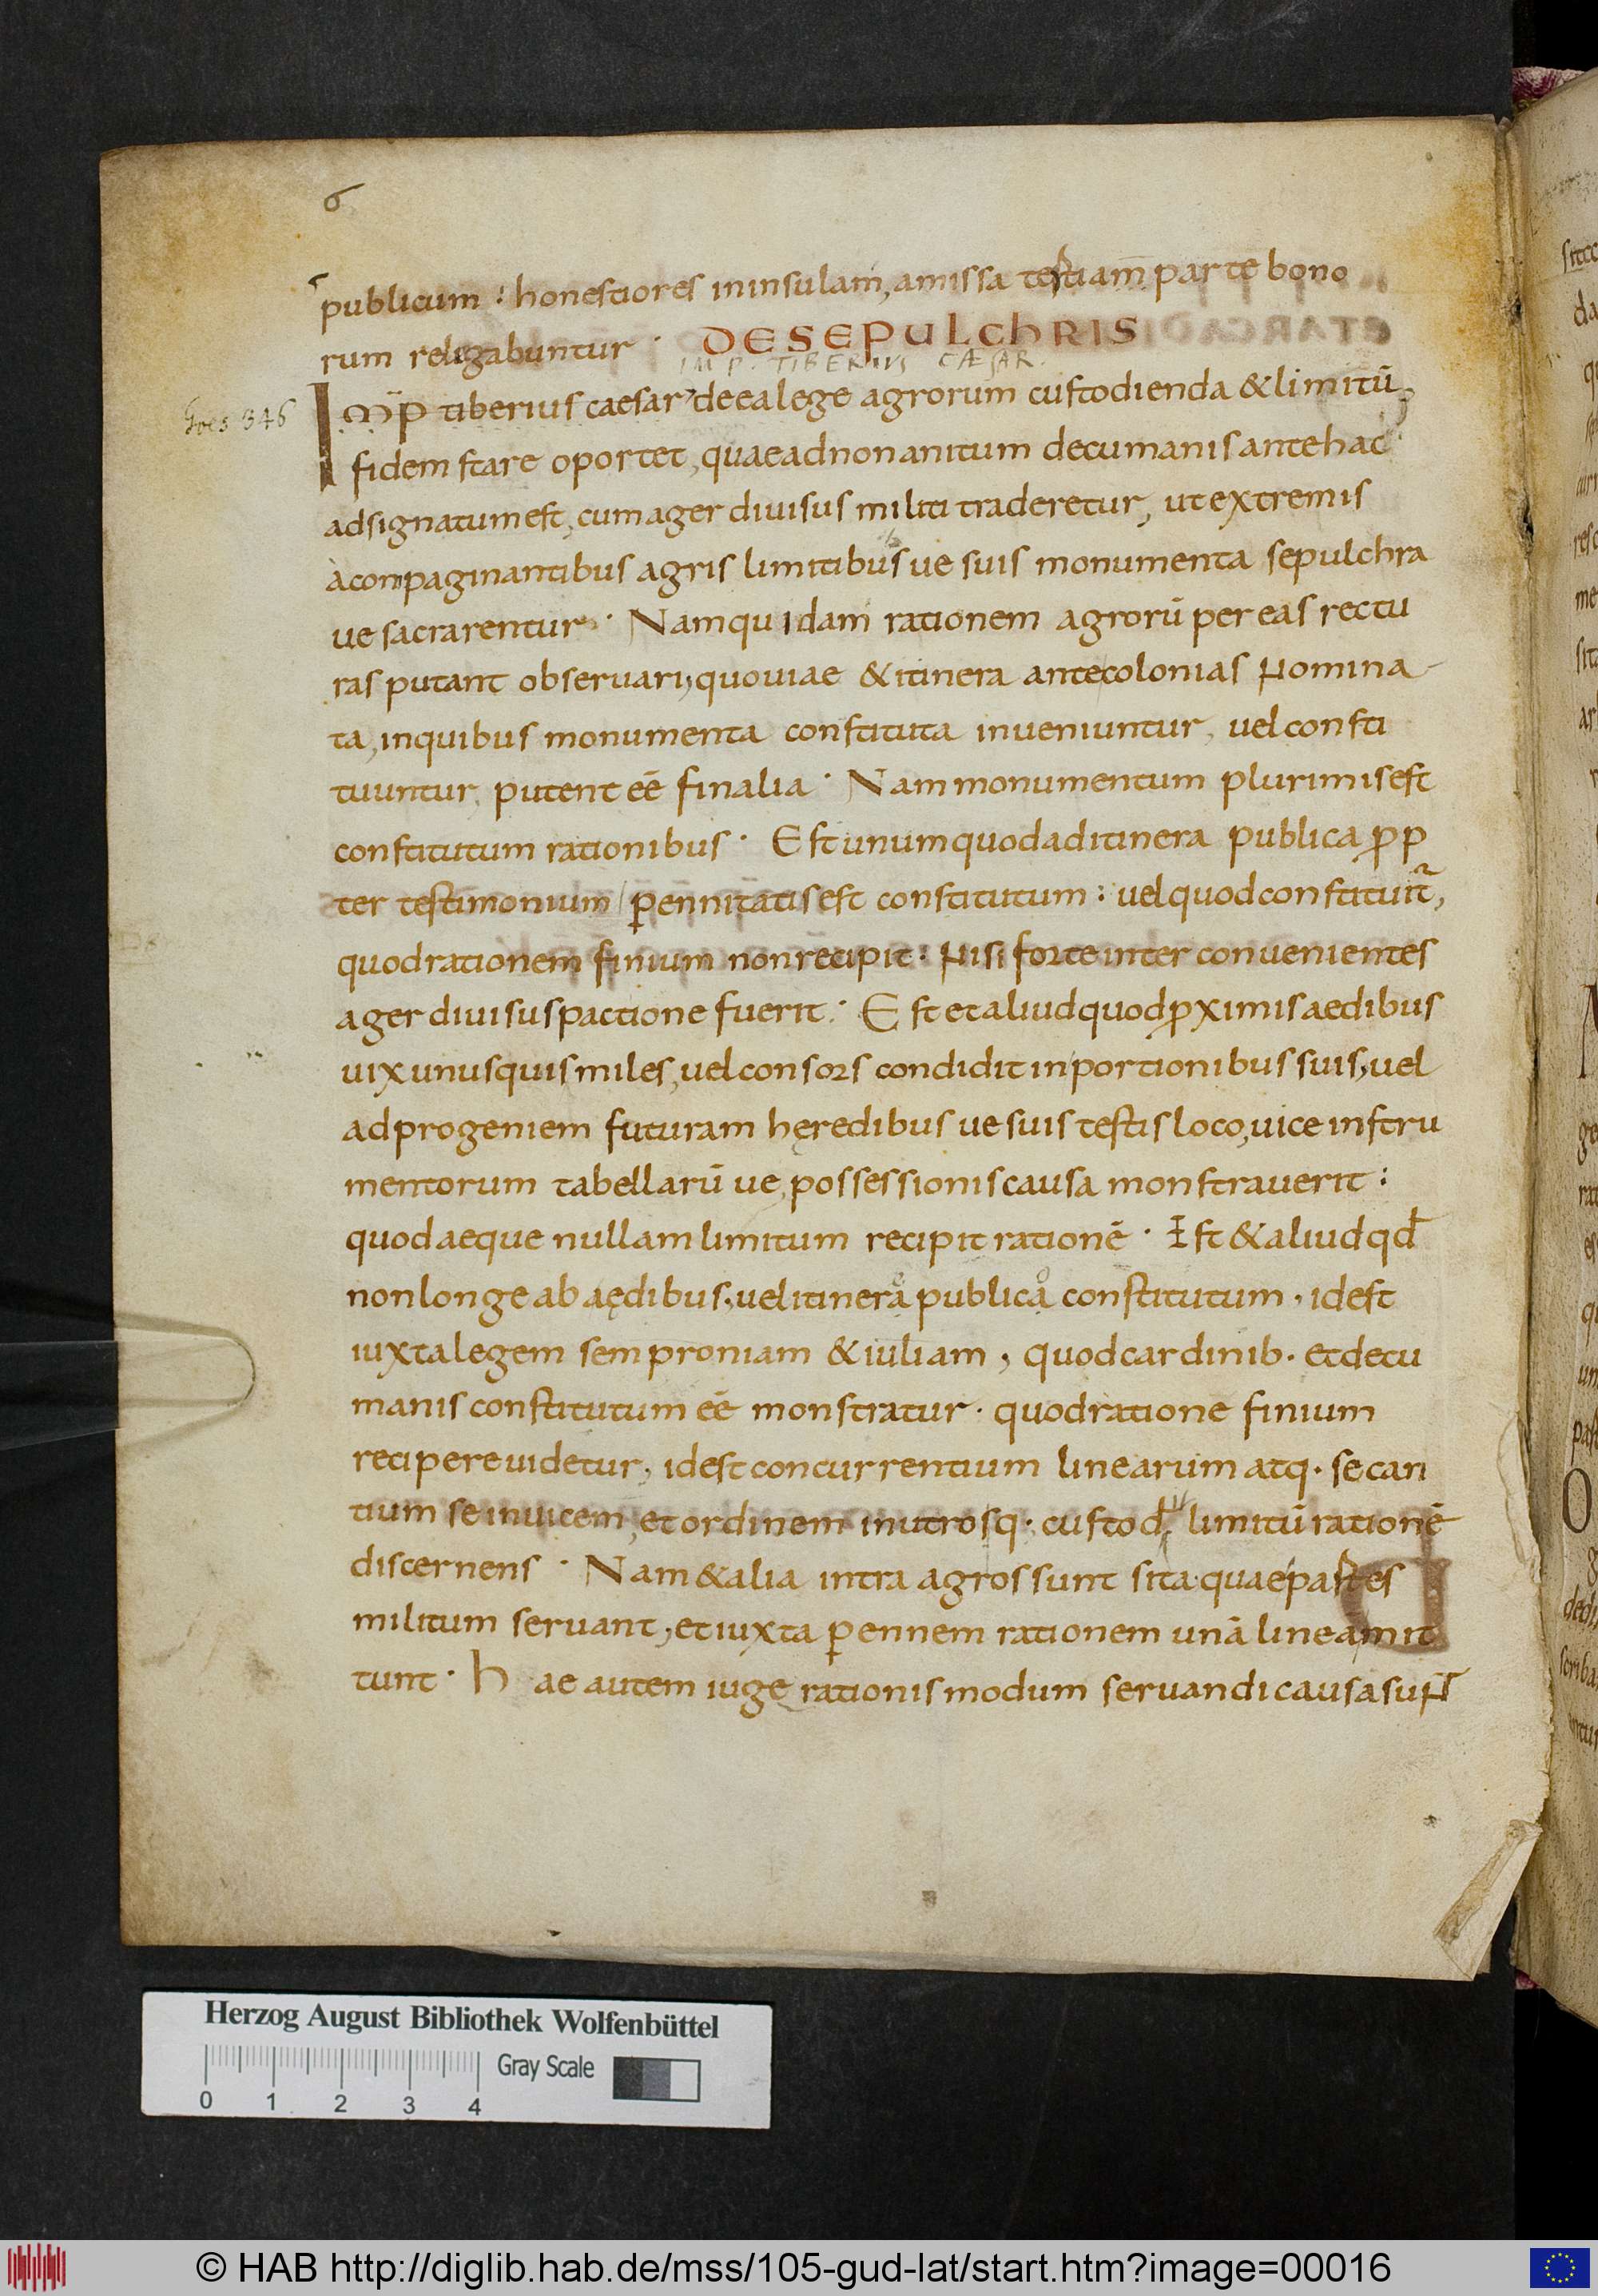 6
publicum : honestiores ininsulam, amissa tertiam parte bono
rum religabuntur · DE SEPULCHRIS
IMP. TIBERIUS CÆSAR.
Goes 346
Imp tiberius caesar deealege agrorum custodienda & limitū,
fidem stare oportet, quaeadnonanitum decumanis antehac
adsignatumest, cumager diuisus militi traderetur, ut extremis
àcompaginantibus agris limitibus ue suis monumenta sepulchra
ue sacrarentur · Nam quidam rationem agrorū per eas rectu
ras putant obseruari, quouiae & itinera antecolonias Nomina
ta, inquibus monumenta constituta inueniuntur, uel consti
tuuntur, putent eē finalia · Nam monumentum plurimis est
constitutum rationibus · Est unum quod ad itinera publica prop
ter testimonium p̱ennitatis est constitutum : uel quod constituit̃,
quod rationem finium non recipit : Nisi forte inter conuenientes
ager diuisus pactione fuerit · Est et aliud quod ꝓximis aedibus
uix unus quis miles, uel consors condidit in portionibus suis, uel
ad progeniem futuram hęredibus ue suis testis loco, uice instru
mentorum tabellarū ue possessionis causa monstrauerit :
quod aeque nullam limitum recipit rationē · Est & aliud qđ
non longe ab aędibus, uel itinera publica constitutum, id est
iuxta legem semproniam & iuliam, quod cardinib. et decu
manis constitutum eē monstratur · quod ratione finium
recipere uidetur, id est concurrentium linearum atq. secan
tium se inuicem, et ordinem in utrosq. custod limitū rationē
discernens · Nam & alia intra agros sunt sita quae partes
militum seruant, et iuxta p̱ennem rationem unā lineam it
tunt · hae autem iuge rationis modum seruandi causa sunt
Herzog August Bibliothek Wolfenbüttel
Gray Scale
0 1 2 3 4
© HAB http://diglib.hab.de/mss/105-gud-lat/start.htm?image=00016